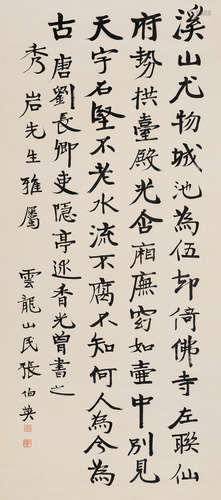 溪山尤物城池為伍却倚佛寺左聯仙
府勢拱臺殿光含廂廡窈如壺中別見
天宇石堅不老水流不腐不知何人為今為
古唐劉長卿吏隱亭述香光曾書之
秀岩先生雅屬　雲龍山民張伯英